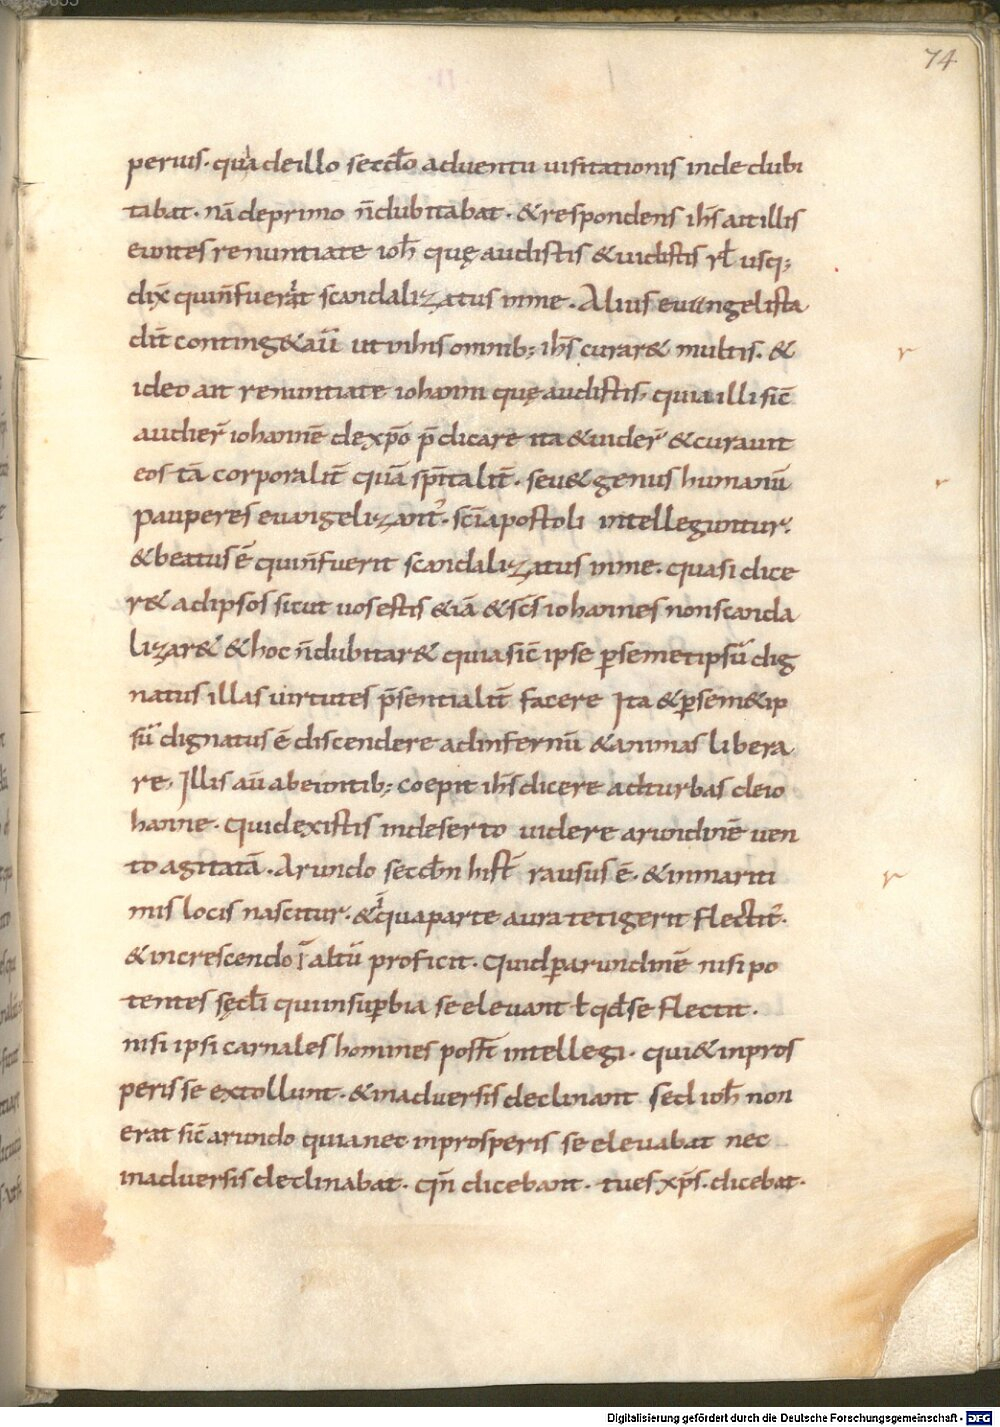 74
peruis. quia deillo secdo aduentu uisitationis inde dubi
tabat. nā deprimo n̄dubitabat. &respondens ihs̄ ait illis
euntes renuntiate ioh̄ quę audistis &uidistis rł usq;
dix̄ quin̄fuerat scandalizatus inme. Alius euangelista
dic̄t conting&aū ut inhis omnib; ihs̄ curar& multis. &
ideo ait renuntiate iohanni quę audistis, quia illi sic̄
audier̄ iohannē dexp̄o p̄dicare ita &uider̄ &curauit
eos tā corporalit̄ quā sp̄italit̄. seu& genus humanū
pauperes euangelizant̄. sc̄i apostoli intelleguntur.
&beatus ē quin̄fuerit scandalizatus inme. quasi dice
r& adipsos sicut uos estis &iā &sc̄s iohannes nonscanda
lizar& &hoc n̄dubitar& quia sic̄ ipse ꝑsemetipsū dig
natus illas uirtutes p̄sentialit̄ facere Ita &ꝑsem&ip
sū dignatus ē discendere adinfernū &animas libera
re, Illis aū abeuntib; coepit ihs̄ dicere adturbas deio
hanne. Quid existis indeserto uidere arundinē uen
to agitatā. Arundo secdm hist̄ rausus ē. &inmariti
mis locis nascitur. &quaparte aura tetigerit flectit̄.
&increscendo ī altū proficit. Quid ꝑarundinē nisi po
tentes sęcli quiinsuꝑbia se eleuant ł qđse flectit.
nisi ipsi carnales homines poss̄t intellegi. qui&inpros
peris se extollunt. &inaduersis declinant sed ioh̄ non
erat sic̄ arundo quia nec inprosperis se eleuabat nec
inaduersis declinabat. qn̄ dicebant. tues xp̄s. dicebat.
Digitalisierung gefördert durch die Deutsche Forschungsgemeinschaft - DFG